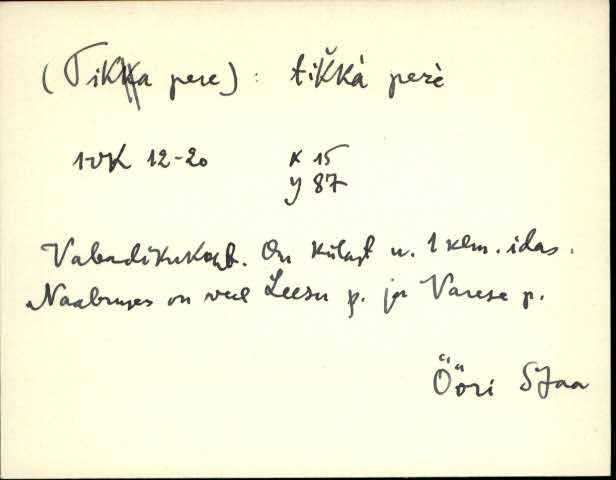 (Tikka pere) : tik̆kà perè
1-VK 12-20 x 15
y 87
Vabadikukoht. On külast u. 1 klm. idas.
Naabruses on veel Leesu p. ja Varese p.
Ööri SJaa